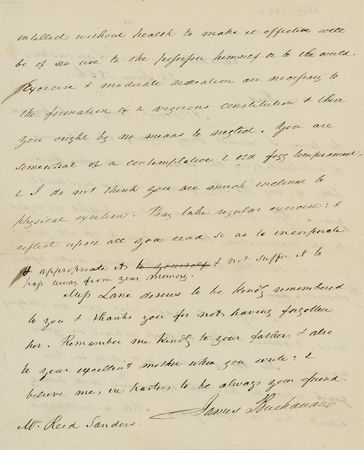 intellect without health to make it effective will
be of no use to the possessor himself or to the world.
Exercise & moderate relaxation are necessary to
the formation of a vigorous constitution & these
you ought by no means to neglect. You are
somewhat of a contemplative & old fogy temperament
& I do not think you are much inclined to
physical exertion. Pray take regular exercise: &
reflect upon all you read so as to incorporate
& appropriate it to yourself & not suffer it to
pass away from your memory.
Miss Lane desires to be kindly remembered
to you & thanks you for not having forgotten
her. Remember me kindly to your father & also
to your excellent mother when you write: &
believe me, in haste, to be always your friend
James Buchanan
Mr. Reid Sanders.